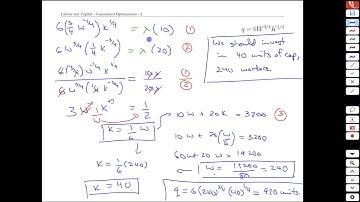 Labour and Capital – Constrained Optimization - 2
q = 6W^{3/4}K^{1/4}
6(3/4 W^{-1/4}) K^{1/4} = λ(10) ①
6W^{3/4}(1/4 K^{-3/4}) = λ(20) ②
6(3/4 W^{-1/4}) K^{1/4} / 6W^{3/4}(1/4 K^{-3/4}) = 10λ / 20λ ① ②
We should invest
in 40 units of cap,
240 workers.
3 W^{-1} K^{+1} / 1 = 1/2
K = 1/6 W
10W + 20K = 3200 ③
10W + 20(W/6) = 3200
K = 1/6 (240)
60W + 20W = 19200
W = 19200/80 = 240
K = 40
q = 6(240)^{3/4}(40)^{1/4} = 920 units.